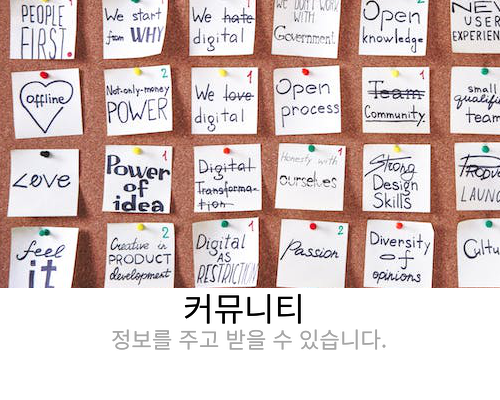 PEOPLE
FIRST.
1
We start
from WHY
2
We hate
digital
1
WE DON'T WORK
WITH
Government
Open
knowledge
2
NEW
USER
EXPERIEN
offline
Not-only-money
POWER
2
We love
digital
1
Open
process
Team
Community.
1
small
qualifi
team
Love
Power
of
idea
1
Digital
Transforma-
tion
1
Honesty with
ourselves
1
Strong
Design
Skills
LAUNC
feel
it
Creative in
PRODUCT
development
2
Digital
AS
RESTRICTION
1
Passion
2
Diversity
of
opinions
Cultu
커뮤니티
정보를 주고 받을 수 있습니다.